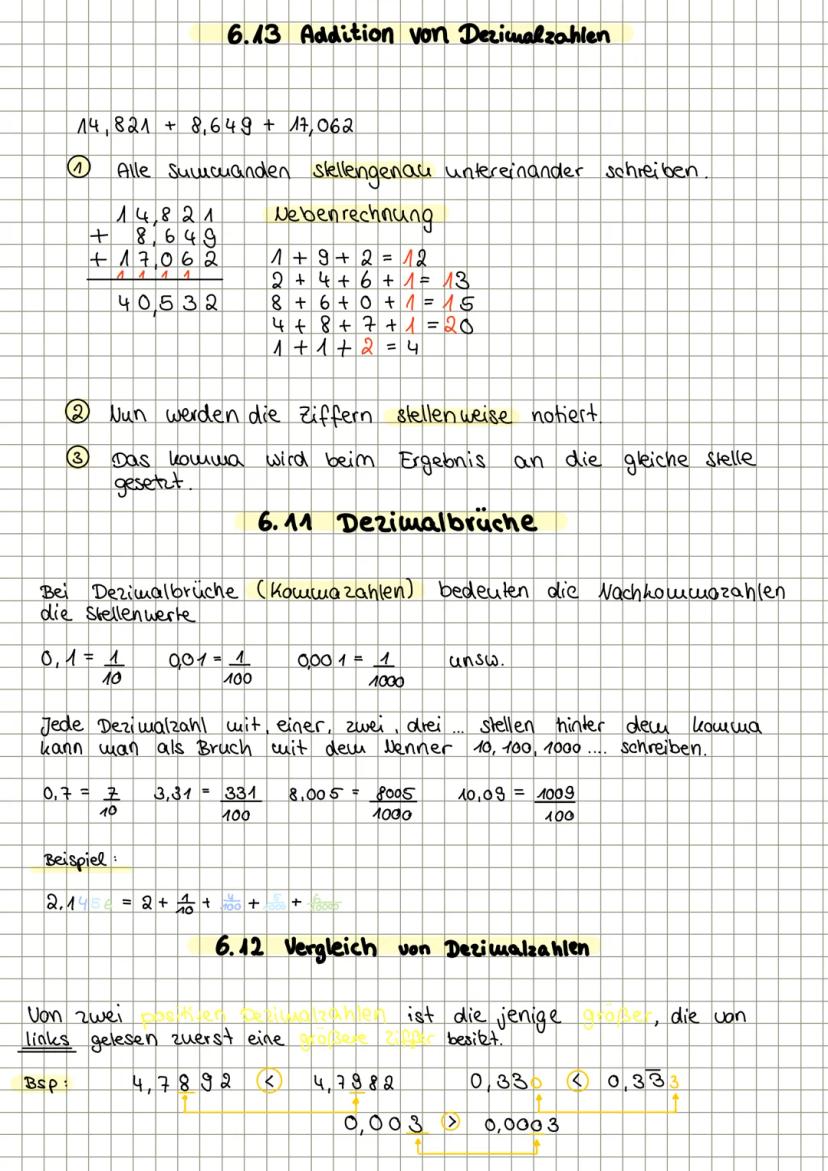 6.13 Addition von Dezimalzahlen
14,821 + 8,649 + 17,062
① Alle Summanden stellengenau untereinander schreiben.
14,821
+ 8,649
+ 17,062
1 1 1 1
40,532
Nebenrechnung
1 + 9 + 2 = 12
2 + 4 + 6 + 1 = 13
8 + 6 + 0 + 1 = 15
4 + 8 + 7 + 1 = 20
1 + 1 + 2 = 4
② Nun werden die Ziffern stellenweise notiert.
③ Das Komma wird beim Ergebnis an die gleiche Stelle
gesetzt.
6.11 Dezimalbrüche
Bei Dezimalbrüche (Kommazahlen) bedeuten die Nachkommazahlen
die Stellenwerte
0,1 = 1/10 0,01 = 1/100 0,001 = 1/1000 unsw.
Jede Dezimalzahl mit, einer, zwei, drei ... stellen hinter dem Komma
kann man als Bruch mit dem Nenner 10, 100, 1000 .... schreiben.
0,7 = 7/10 3,31 = 331/100 8,005 = 8005/1000 10,09 = 1009/100
Beispiel:
2,1456 = 2 + 1/10 + 4/100 + 5/1000 + 6/10000
6.12 Vergleich von Dezimalzahlen
Von zwei positiven Dezimalzahlen ist die jenige größer, die von
links gelesen zuerst eine größere Ziffer besitzt.
Bsp: 4,7892 < 4,7982 0,330 < 0,33̅3
0,003 > 0,0003